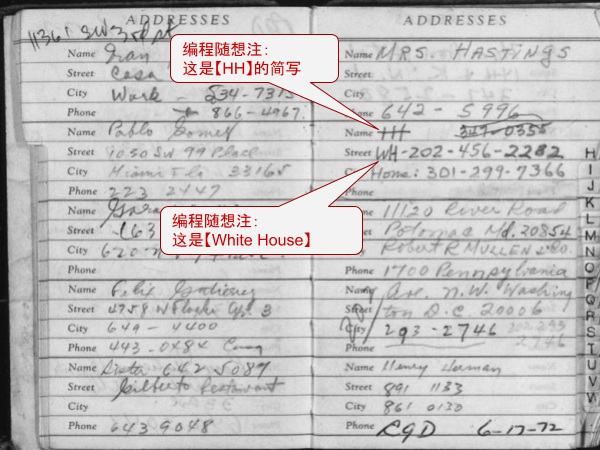 ADDRESSES
11361 SW 3rd pt
Name Ivan
Street Casa
City Work - 534-7313
Phone 866-4967
Name Pablo Gomez
Street 1030 SW 99 Place
City Miami Fla 33165
Phone 223 2447
Name
Street 163
City 620
Phone
Name Felix Gutierrez
Street 4758 W Flagler Ap. 3
City 649 - 4400
Phone 443-0484
Name 642-5087
Street Gilberto Restaurant
City
Phone 643 9048
ADDRESSES
Name MRS. HASTINGS
Street
City
Phone 642 - 5996
Name HH 347-0355
Street WH-202-456-2282
City Home: 301-299-7366
Phone
Name 11120 River Road
Street Potomac Md. 20854
City Robert R MULLEN & CO.
Phone 1700 Pennsylvania
Name Ave. N.W. Washing
Street ton D.C. 20006
City 293-2746
Phone
Name Henry
Street 891 1133
City 861 0130
Phone RGD 6-17-72
编程随想注:
这是【HH】的简写
编程随想注:
这是【White House】
H
I
J
K
L
M
N
O
P
Q
R
S
T
U
V
W